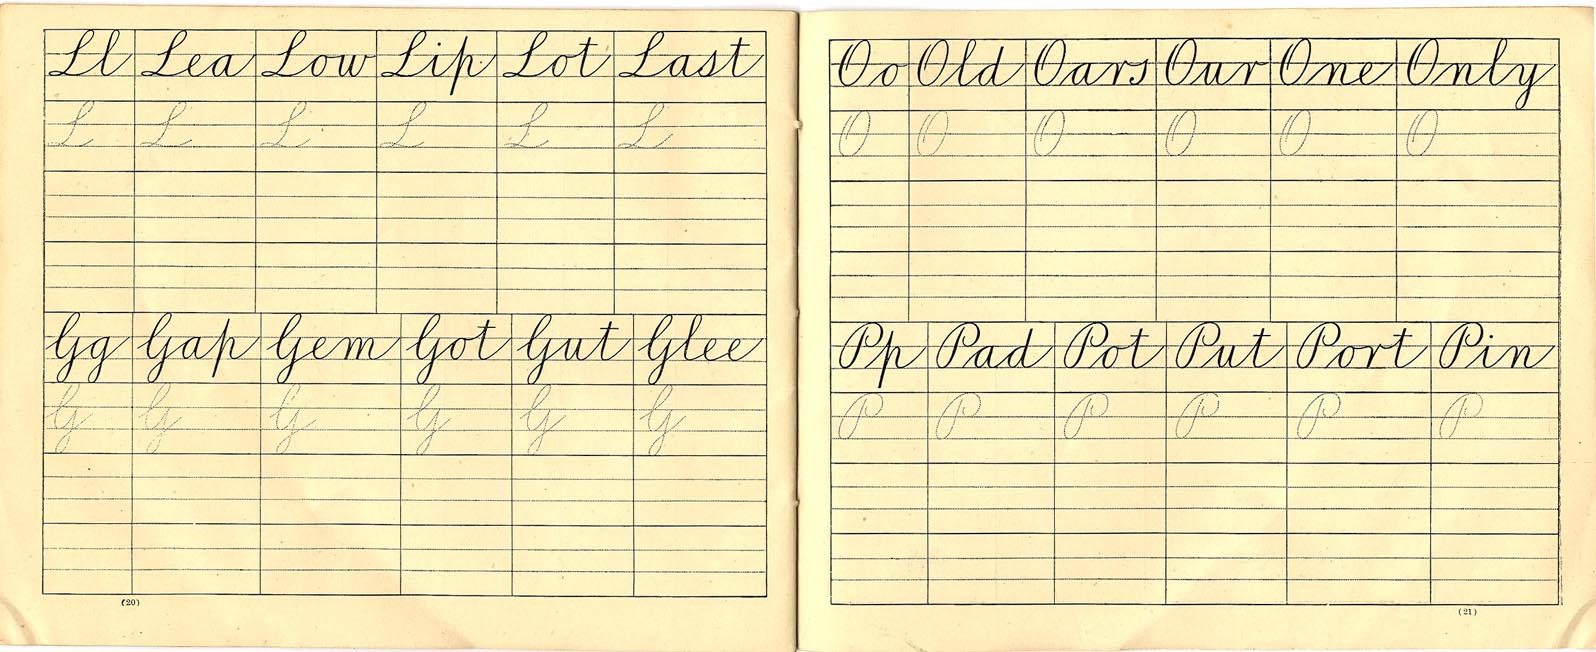 Ll Lea Low Lip Lot Last
L L L L L L
Gg Gap Gem Got Gut Glee
G G G G G G
(20)
Oo Old Oars Our One Only
O O O O O O
Pp Pad Pot Put Port Pin
P P P P P P
(21)